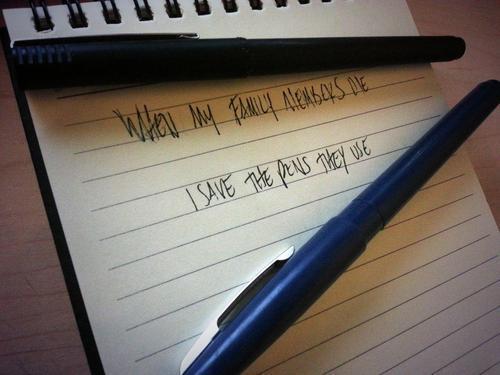 WHEN MY FAMILY MEMBERS DIE
I SAVE THE PENS THEY USE